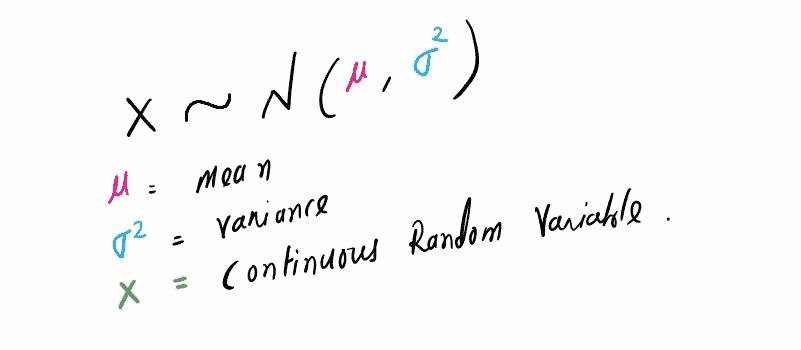 X ~ N (μ, σ²)
μ = mean
σ² = variance
X = Continuous Random Variable.